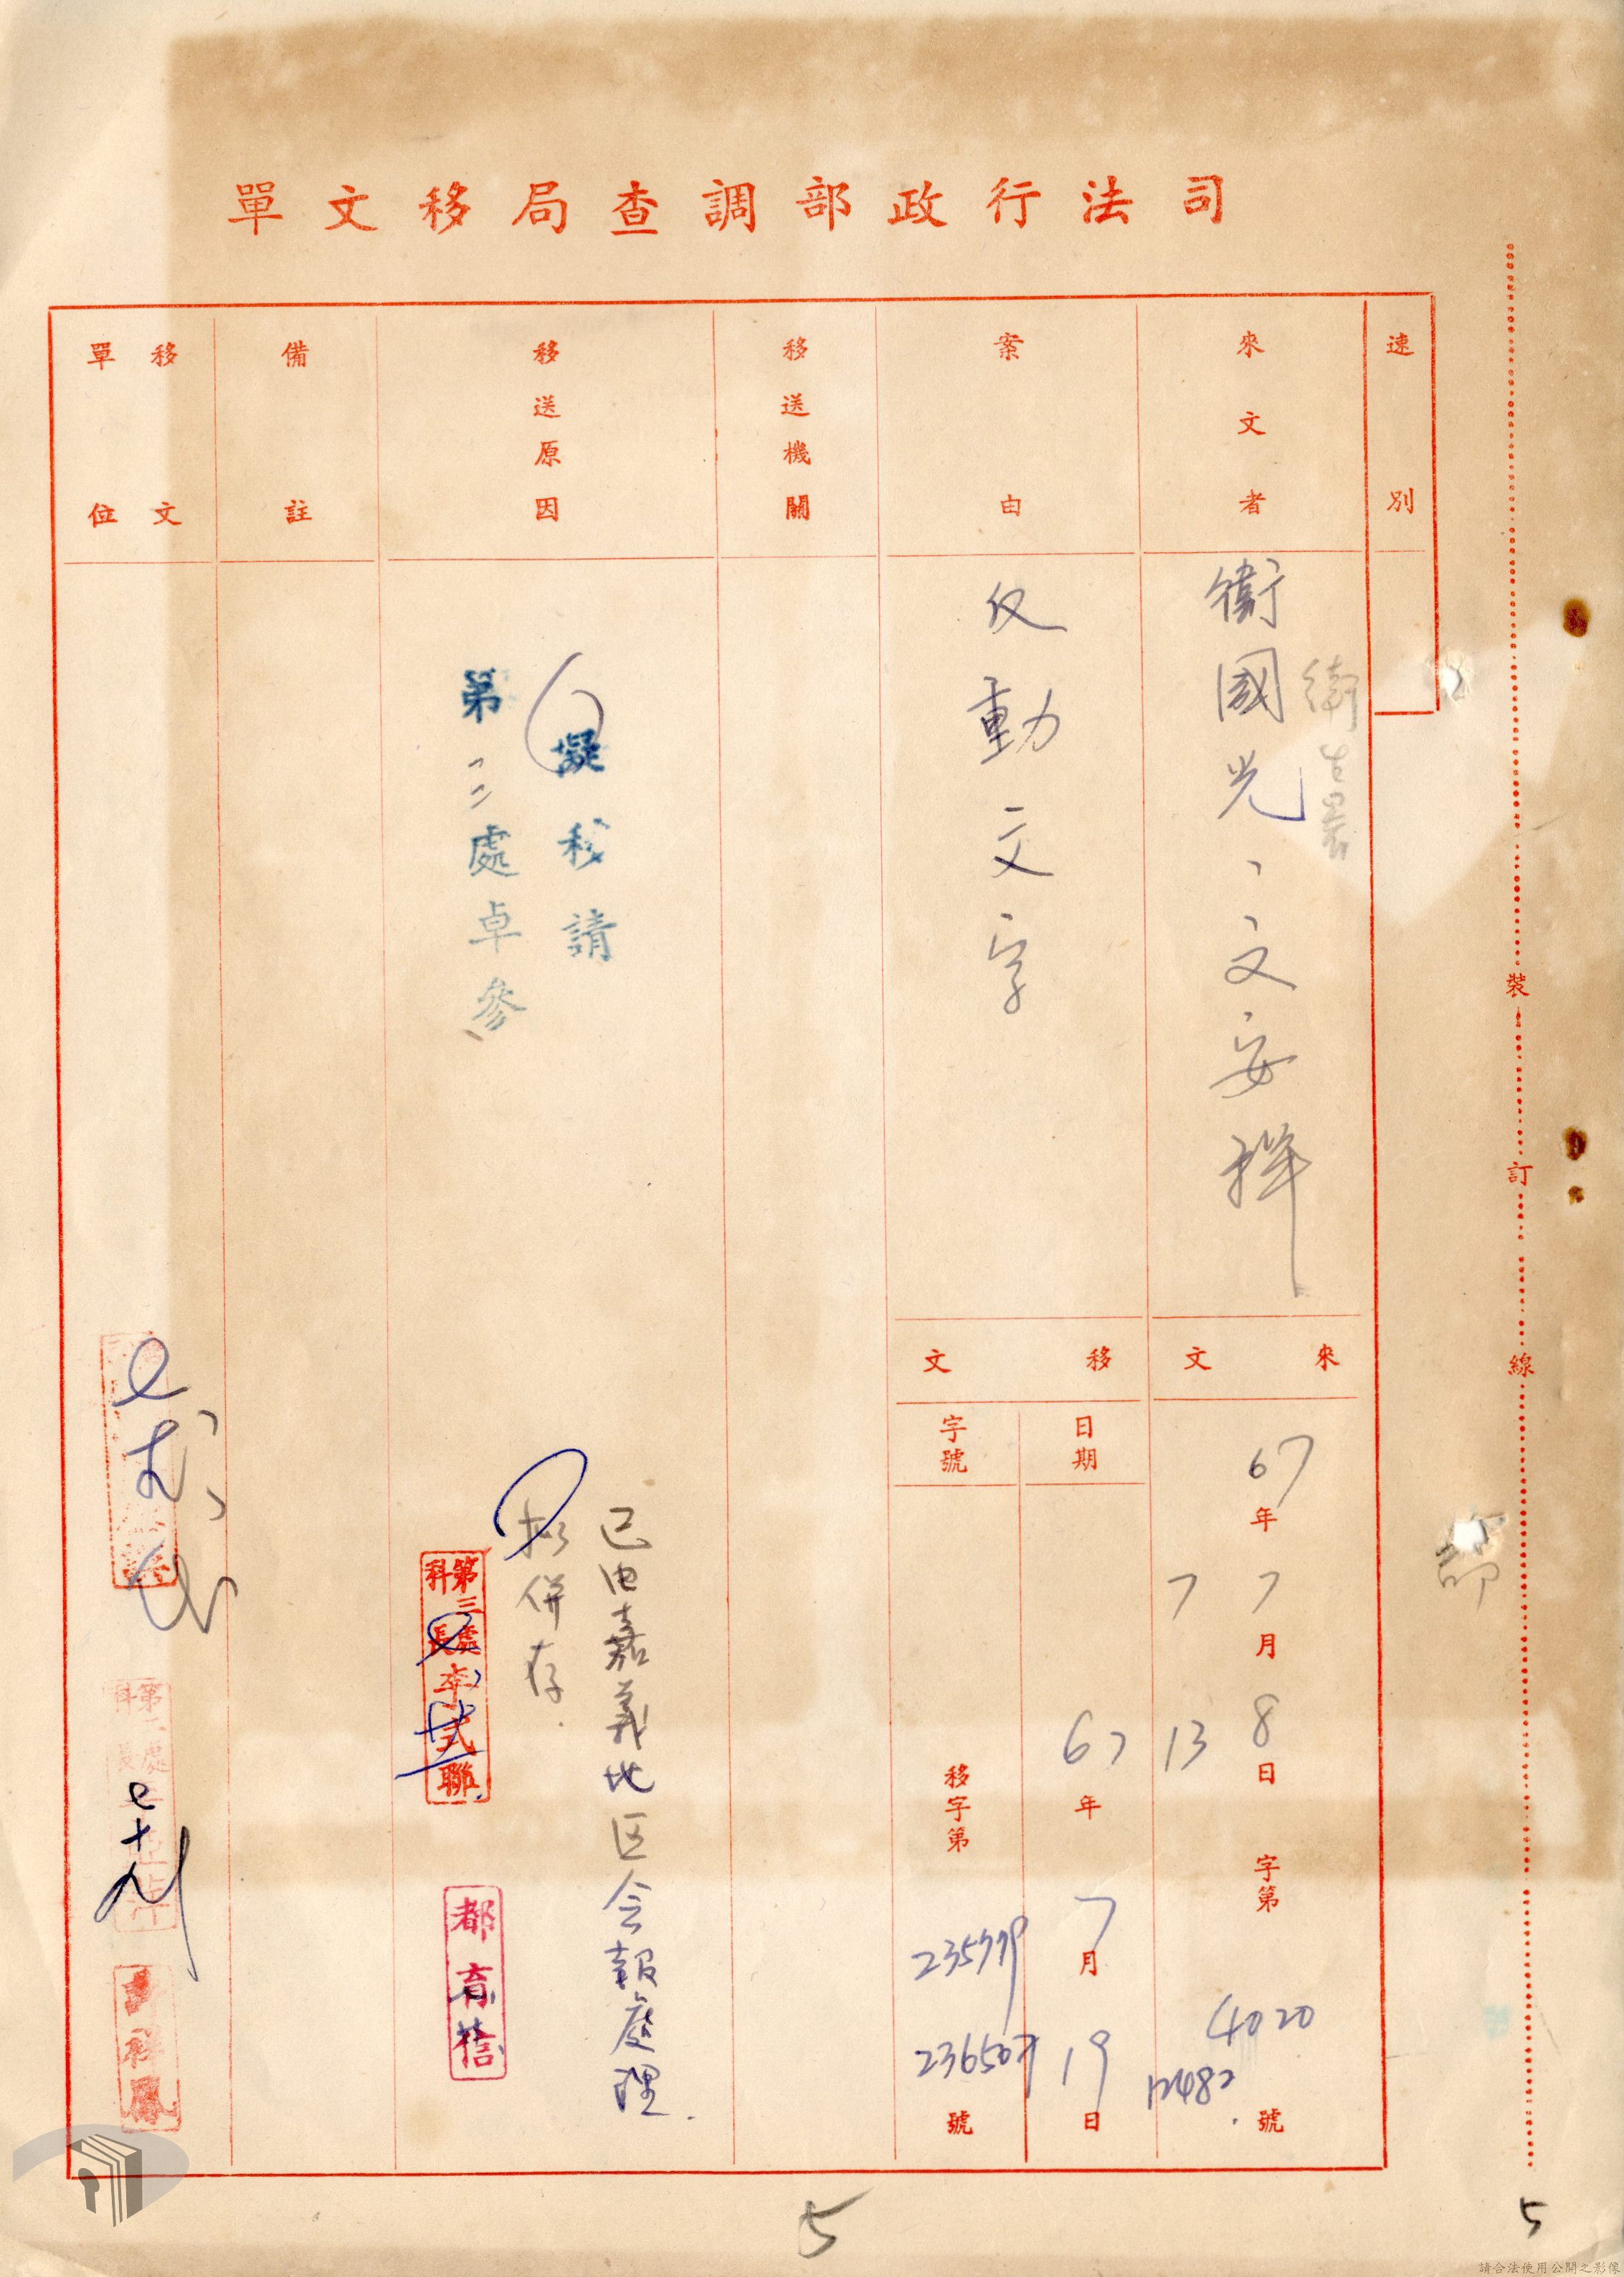 司法行政部調查局移文單
速別
來文者
衛國光、文安祥
案由
反動文字
移送機關
移送原因
擬移請
第三處卓參
已由嘉義地区会報處理.
拟併存.
第三處
科長李式聯
都育
備註
移文單位
第二處
科長
祥鳳
來文
67年7月8日
7 13
字第4020號
12482
移文
日期
67年7月19日
字號
移字第
號
裝訂線
5
5
請合法使用公開之影像